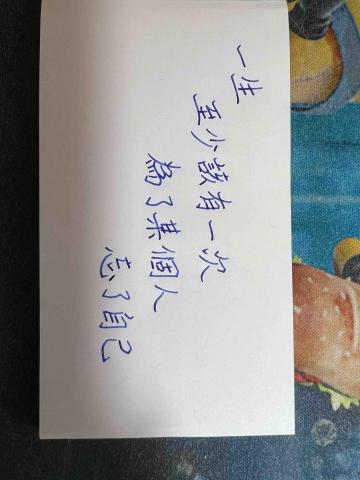 一生
至少該有一次
為了某個人
忘了自己